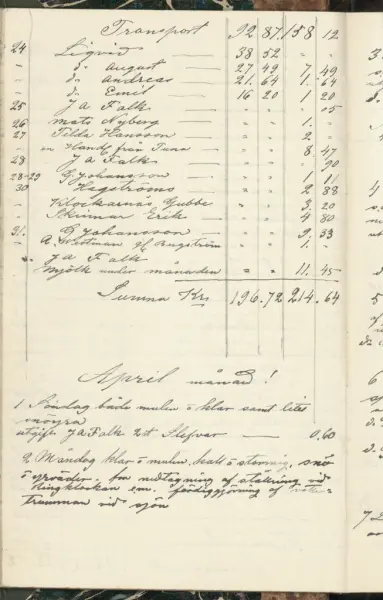 Transport 92 87. 158 12
24 Liqvid 38 52 " "
" d: August 27 49 7. 49
" d: Andreas 21. 64 1. 64
" d: Emil 16 20 1 20
25 J A Falk " " " 15
26 Mats Nyberg " " 1. "
27 Tilda Hansson " " 2 "
" en Hand från " " 8. 47
28 J A Falk " " " 90
28-29 G Johansson " " 1 11
30 Hagströms " " 2 88
" Klockarnäs Gubbe " " 3. 20
" Skinnar Erik " " 4 80
31. G Johansson " " 9 33
A. Westman " " 1. "
" J A Falk
mjölk under månaden " " 11. 45
Summa Krs 196.72 214.64
April månad!
1 Söndag både mulen o klar samt litet
snöyra
utgift J A Falk 2 st 0,60
2 Måndag klar o mulen, kallt o stormig, snö
o yrväder. fm nedtagning af ställning vid
Ringklockan em. färdiggjörning af
trumman vid sjön